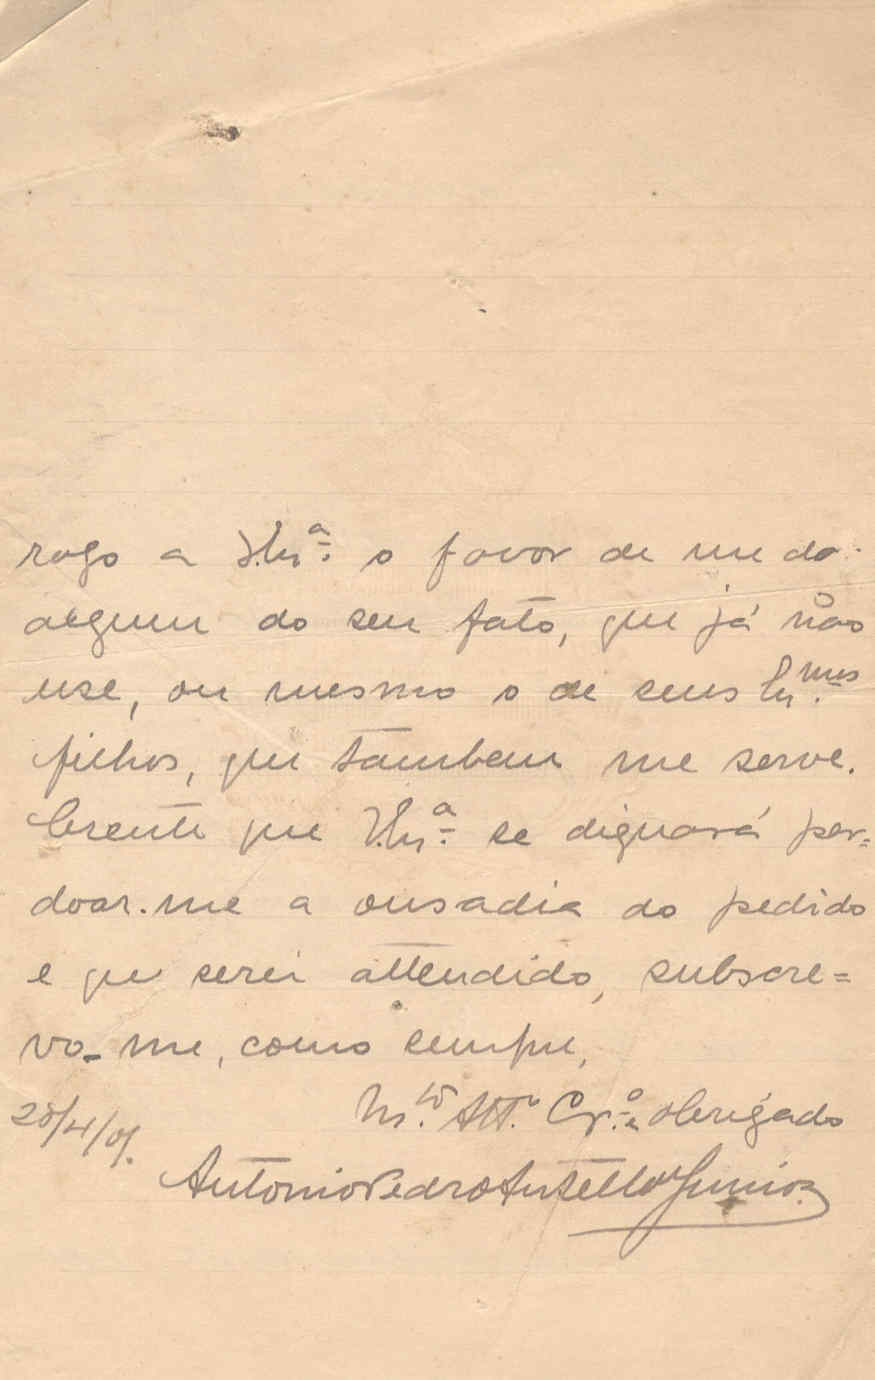 rogo a V.Ex.ª o favor de me da
algum do seu fato, que já não
use, ou mesmo o de seus Ex.mos
filhos, que tambem me serve.
Crente que V.Ex.ª se dignará per=
doar-me a ousadia do pedido
e que serei attendido, subscre=
vo-me, como sempre,
M.to Att.o Cr.o e obrigado
28/4/
Antonio Pedro Junior